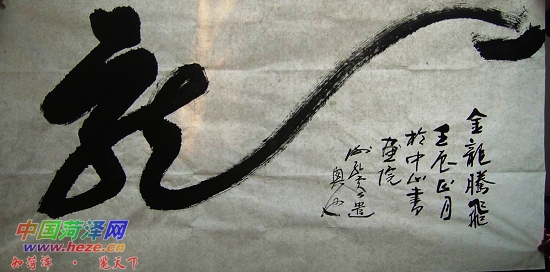 龍
金龍騰飛
壬辰正月
於中山書
畫院
中国菏泽网
www.heze.cn
知菏泽 · 览天下